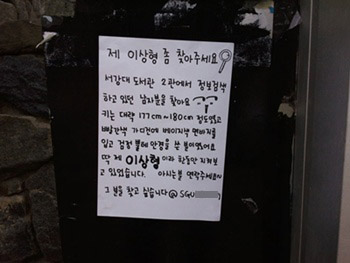 제 이상형 좀 찾아주세요
서강대 도서관 2관에서 정보검색
하고 있던 남자분을 찾아요
키는 대략 177cm~180cm 정도였고
빨간색 가디건에 베이지색 면바지를
입고 검정 뿔테 안경을 쓴 분이였어요
딱 제 이상형이라 한동안 지켜보
고 있었습니다. 아시는분 연락주세요~
그 분을 찾고 싶습니다@ SGU